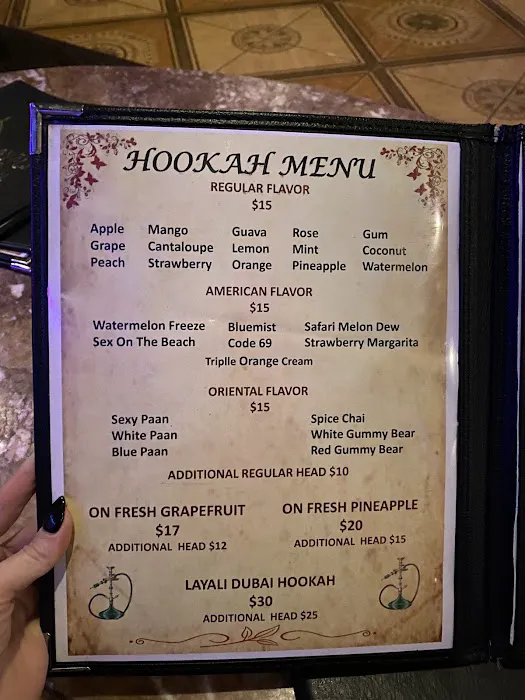 HOOKAH MENU
REGULAR FLAVOR
$15
Apple Mango Guava Rose Gum
Grape Cantaloupe Lemon Mint Coconut
Peach Strawberry Orange Pineapple Watermelon
AMERICAN FLAVOR
$15
Watermelon Freeze Bluemist Safari Melon Dew
Sex On The Beach Code 69 Strawberry Margarita
Triplle Orange Cream
ORIENTAL FLAVOR
$15
Sexy Paan Spice Chai
White Paan White Gummy Bear
Blue Paan Red Gummy Bear
ADDITIONAL REGULAR HEAD $10
ON FRESH GRAPEFRUIT ON FRESH PINEAPPLE
$17 $20
ADDITIONAL HEAD $12 ADDITIONAL HEAD $15
LAYALI DUBAI HOOKAH
$30
ADDITIONAL HEAD $25